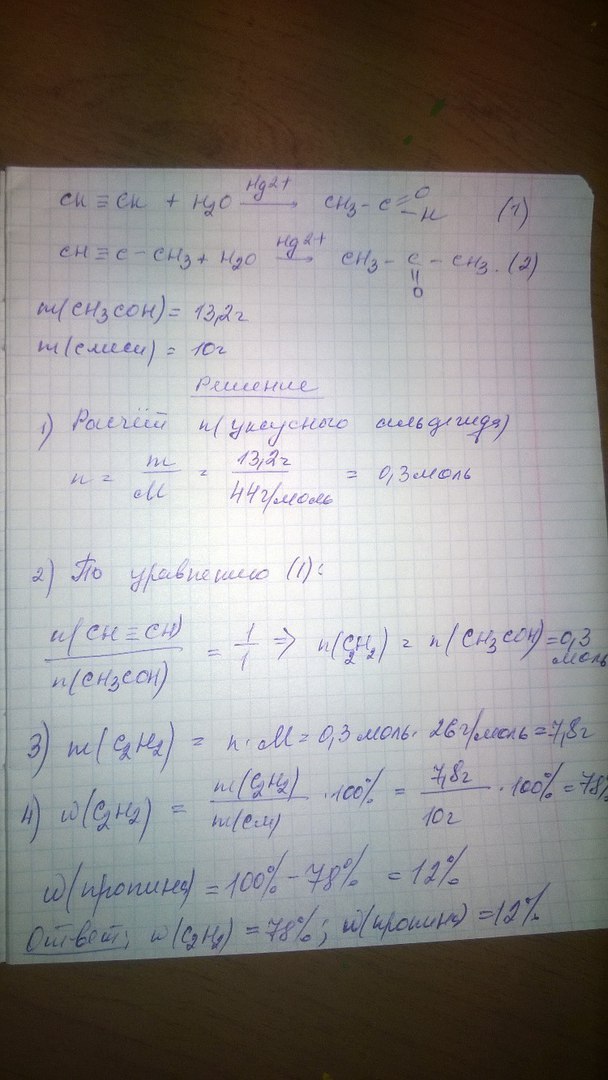 CH≡CH + H2O Hg2+ → CH3-C=O-H (1)
CH≡C-CH3 + H2O Hg2+ → CH3-C-CH3. (2)
||
O
m(CH3COH) = 13,2г
m(смеси) = 10г
Решение
1) Расчёт n(уксусного альдегида)
n = m/M = 13,2г/44г/моль = 0,3 моль
2) По уравнению (1):
n(CH≡CH)/n(CH3COH) = 1/1 => n(C2H2) = n(CH3COH) = 0,3 моль
3) m(C2H2) = n·M = 0,3 моль · 26г/моль = 7,8г
4) w(C2H2) = m(C2H2)/m(см) · 100% = 7,8г/10г · 100% = 78%
w(пропина) = 100% - 78% = 12%
Ответ: w(C2H2) = 78%; w(пропина) = 12%